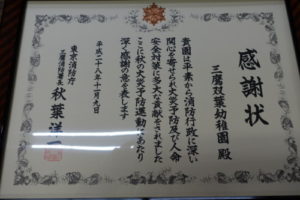 感謝状
三鷹双葉幼稚園 殿
貴園は平素から消防行政に深い
関心を寄せられ火災予防及び人命
安全対策に多大な貢献をされました
ここに秋の火災予防運動にあたり
深く感謝の意を表します
平成二十八年十一月九日
東京消防庁
三鷹消防署長 秋葉洋一